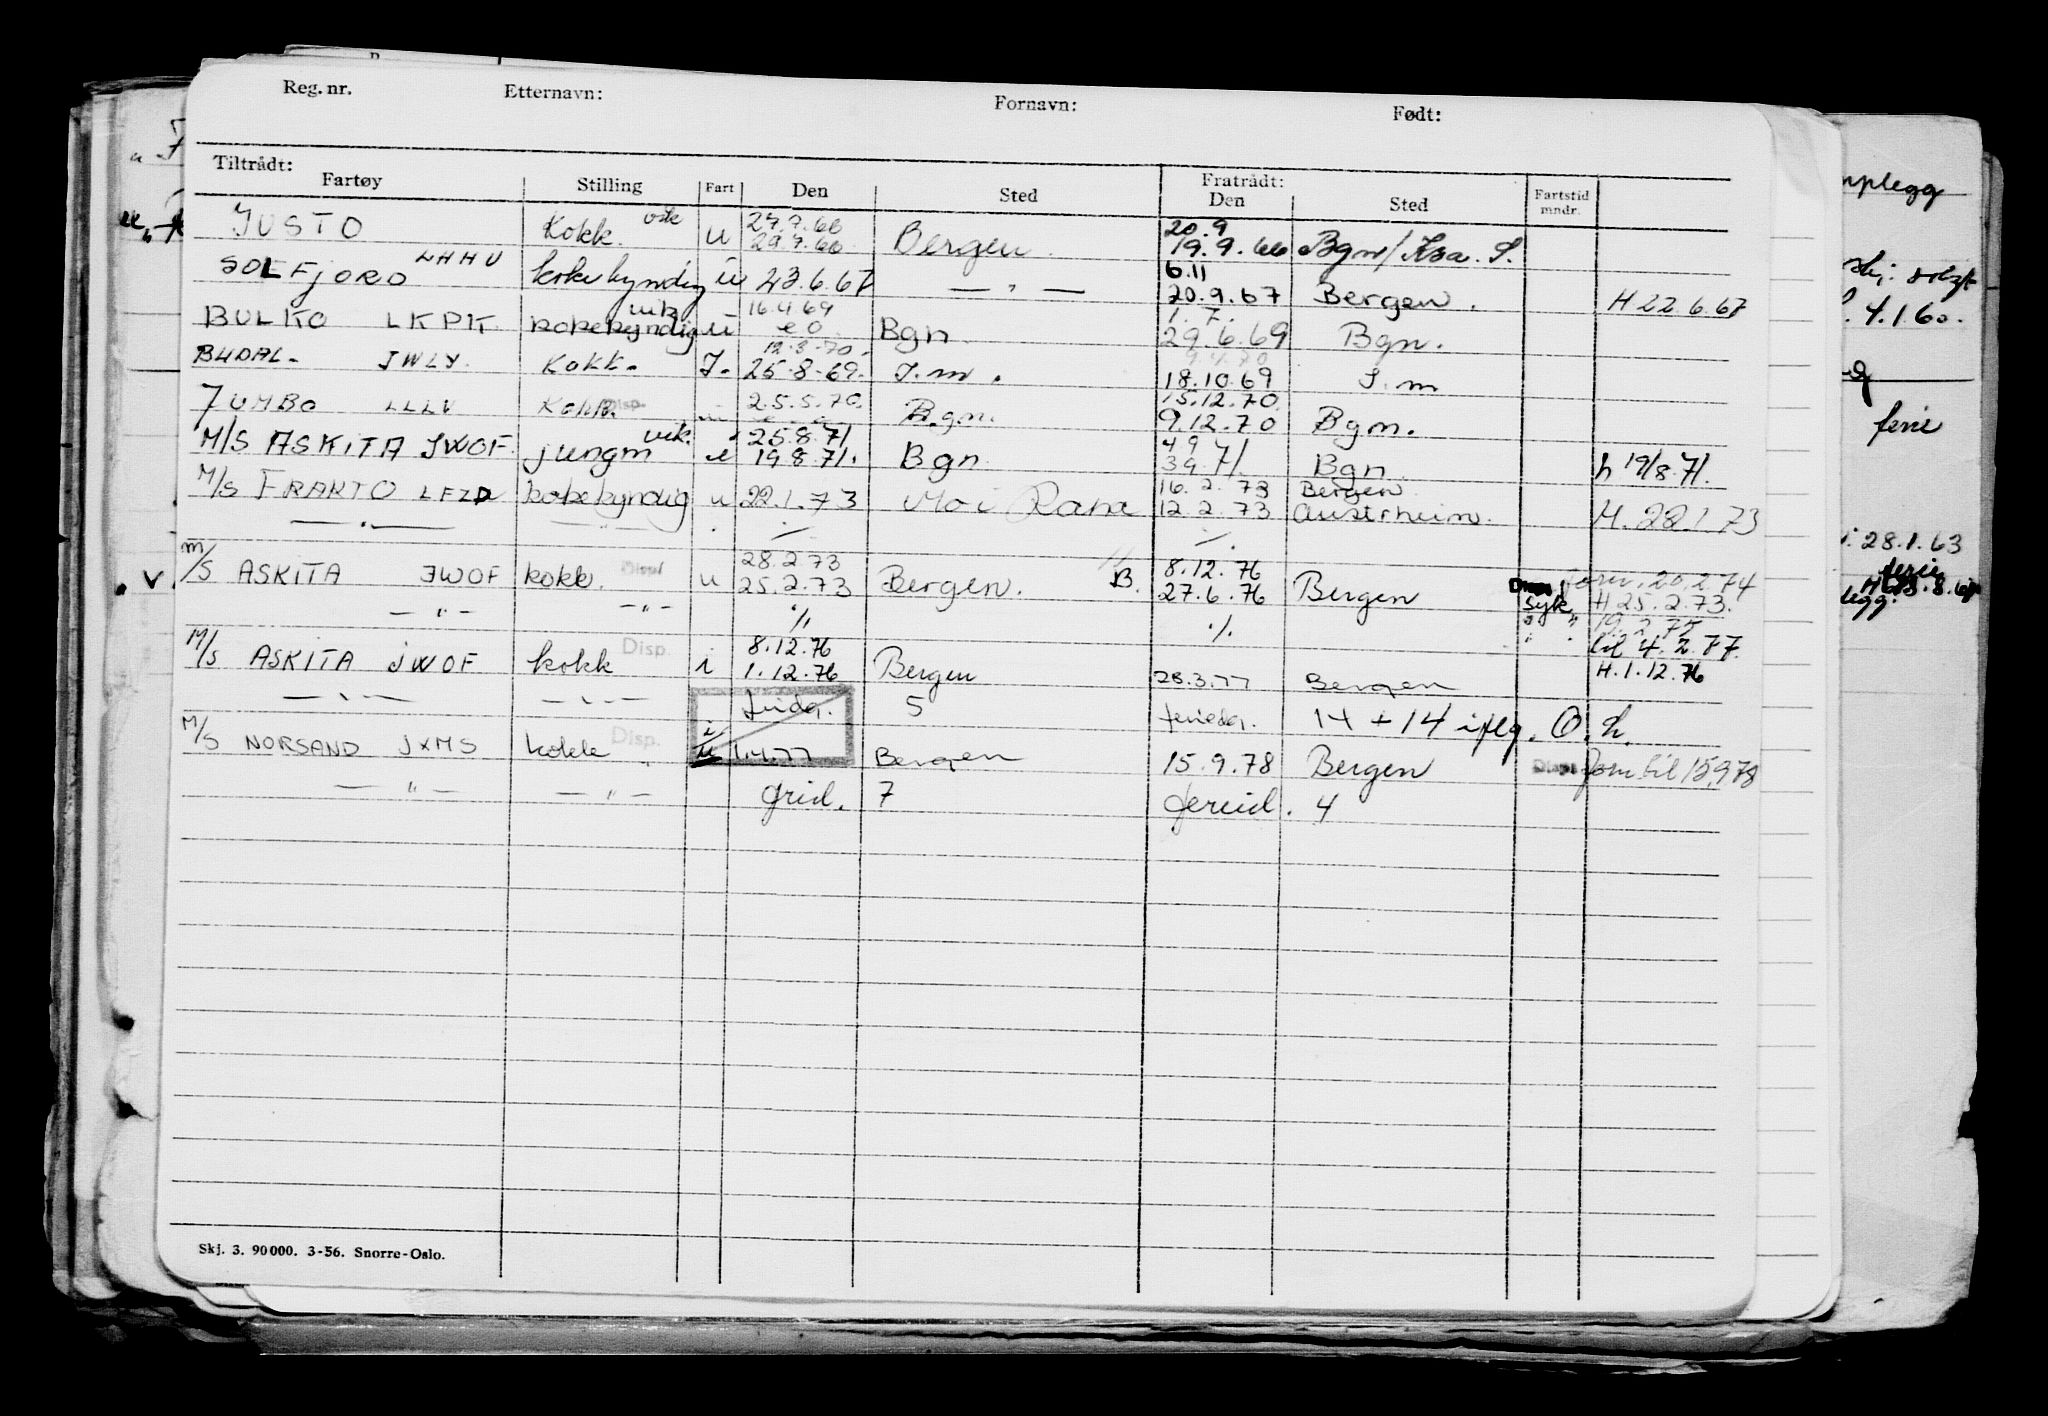 Reg. nr. Etternavn: Fornavn: Født:
Tiltrådt: Fratrådt:
Fartøy Stilling Fart Den Sted Den Sted Fartstid mndr.
JUSTO Kokk. vik u 27.7.66 29.7.66 Bergen. 20.9 19.9.66 Bgn/
SOLFJORD LHHU kokekyndig u 23.6.67 — " — 6.11 20.9.67 Bergen. H 22.6.67
BULKO LKPK kokekyndig vik u 16.4.69 Bgn 1.7. 29.6.69 Bgn.
BUDAL- JWLY. Kokk. J. 12.3.70. 25.8.69. J.m. 9.4.70 18.10.69 J.m
JUMBO LLLV Kokk. Disp. 25.5.70. Bgn. 15.12.70 9.12.70 Bgn.
M/S ASKITA JWOF. jungm vik. u 25.8.71 19.8.71. Bgn 4 9 3 9 71. Bgn h 19/8.71.
M/S FRAKTO LFZD kokekyndig u 22.1.73 Mo i Rana 16.2.73 12.2.73 Bergen Austrheim. H.22.1.73
— " — — " — ./. ./.
M/S ASKITA JWOF kokk. Disp u 28.2.73 25.2.73 Bergen. B. 8.12.76 27.6.76 Bergen 20.2.74
— " — — " — ./. ./. syk H 25.2.73.
" " 19.2.75
" " til 4.2.77.
M/S ASKITA JWOF kokk Disp. i 8.12.76 1.12.76 Bergen 28.3.77 Bergen H.1.12.76
— " — — " — fridg. 5 feriedg. 14 + 14 iflg. O.h.
M/S NORSAND JXMS kokk Disp. i u 1.4.77 Bergen 15.9.78 Bergen Disp. til 15.9.78
— " — — " — frid. 7 fereid. 4
Skj. 3. 90000. 3-56. Snorre-Oslo.
ferie
4.1.60.
28.1.63
ferie